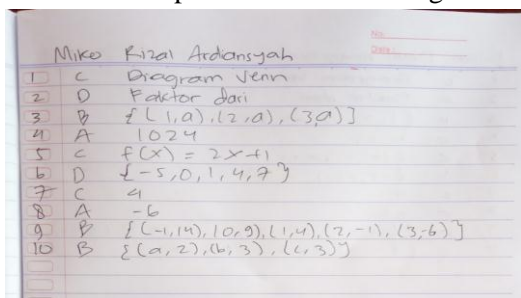 No.
Date.
Miko Rizal Ardiansyah
1 C Diagram Venn
2 D Faktor dari
3 B { (1,a), (2,a), (3,a) }
4 A 1024
5 C f(x) = 2x+1
6 D {-5,0,1,4,7}
7 C 4
8 A -6
9 B { (-1,14), (0,9), (1,4), (2,-1), (3,-6) }
10 B { (a,2), (b,3), (c,3) }